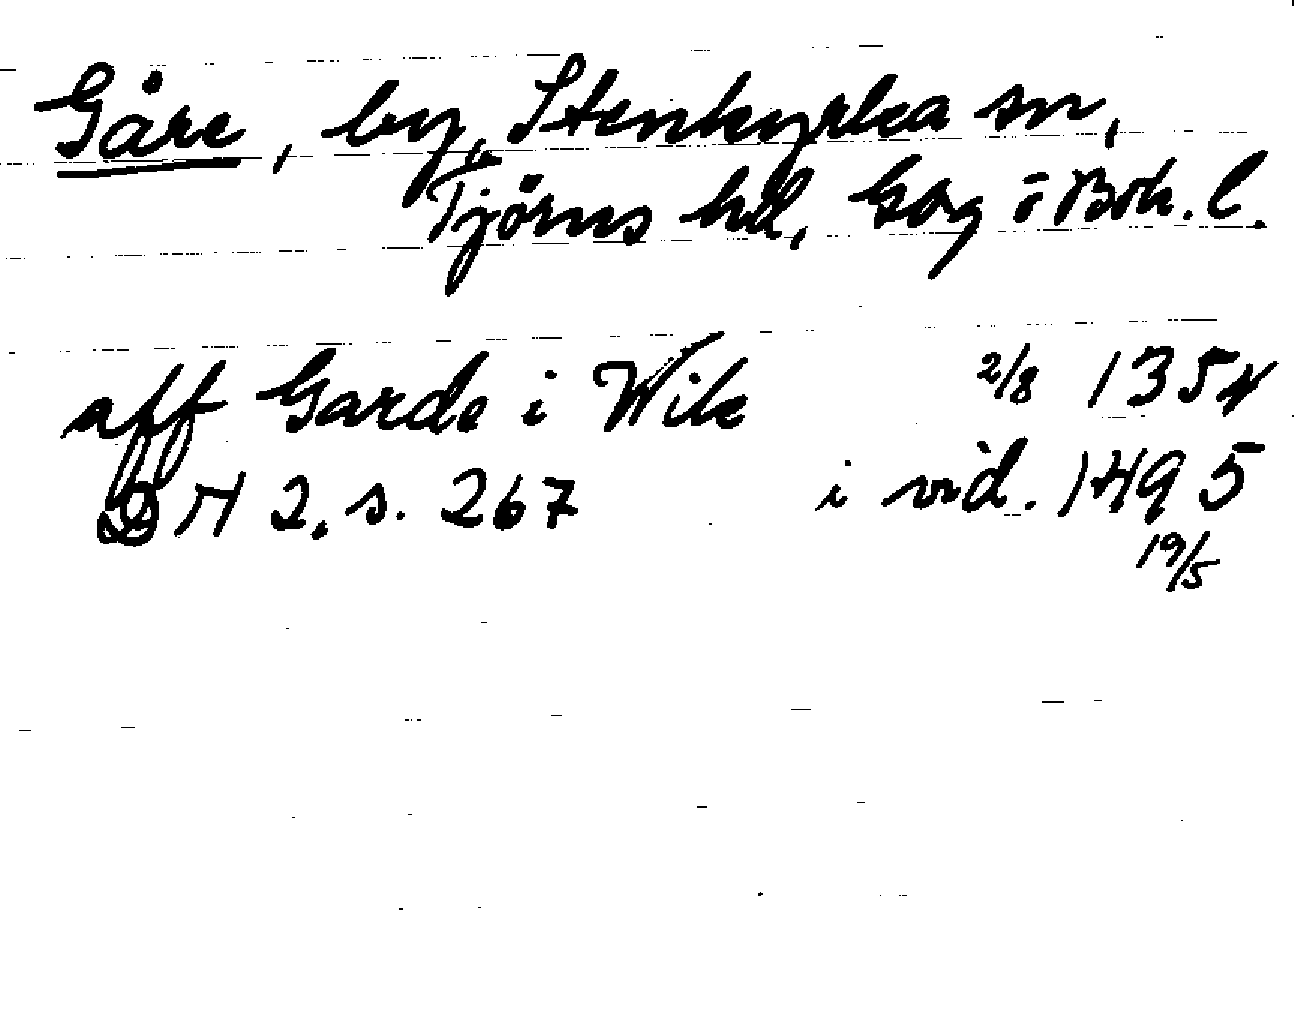 Gåre, by, Stenkyrka sn,
Tjörns hd, Gbg o Boh. l.
aff Garde i Wik 2/8 1354
DN 2. s. 267 i vid. 1495
19/5